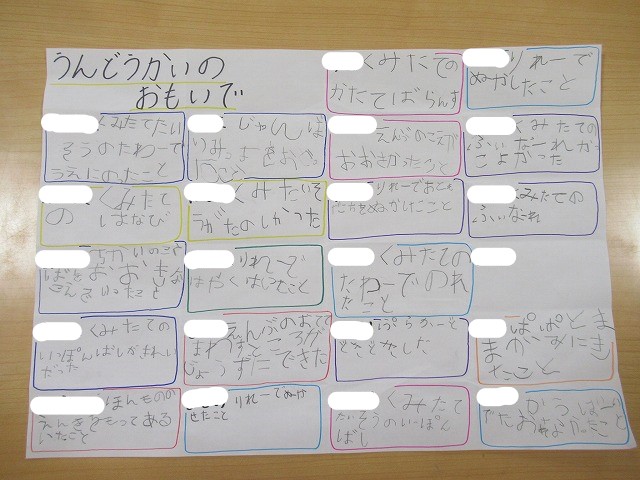 うんどうかいの
おもいで
くみたての
かたてばらんす
りれーで
ぬかしたこと
くみたてたい
そうのたわーで
うえにのったこと
じゃんぼ
えんぶのこえが
おおきかったこと
くみたての
ふぃなーれがか
っこよかった
くみたて
の しまなび
くみたいそ
うがたのしかった
りれーでおとも
だちをぬかしたこと
くみたての
ふぃなーれ
りれーで
はやくはしったこと
くみたての
たわーでのれ
たこと
くみたての
いっぽんばしがきれい
だった
えんぶのおて
まわすところが
じょうずにできた
ぱぱとま
まがみにき
たこと
ほんものの
えんぎをもってある
いたこと
りれーでぬか
せたこと
くみたて
たいそうのいっぽん
ばし